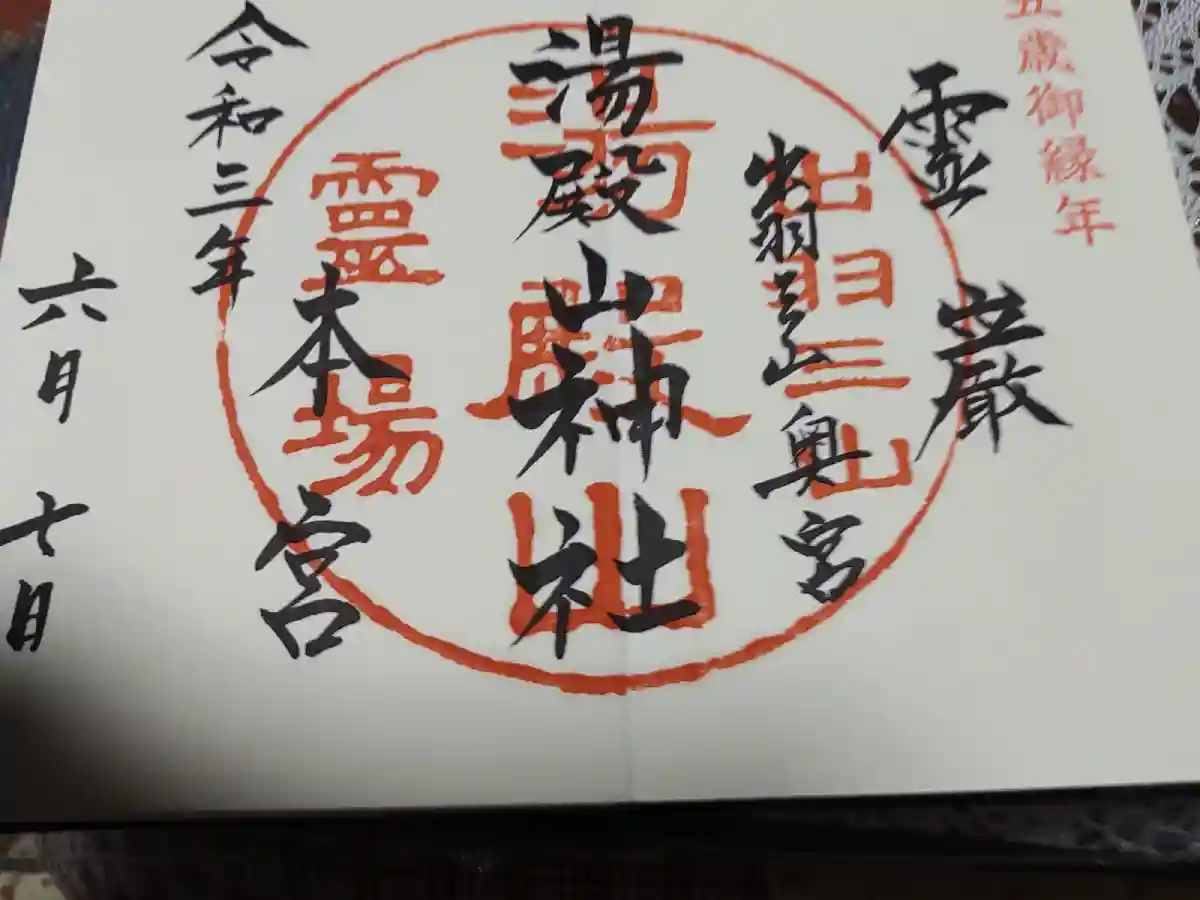 丑歳御縁年
霊巌
出羽三山奥宮
湯殿山神社
本宮
令和三年
六月十日
出羽三山
湯殿山
霊場